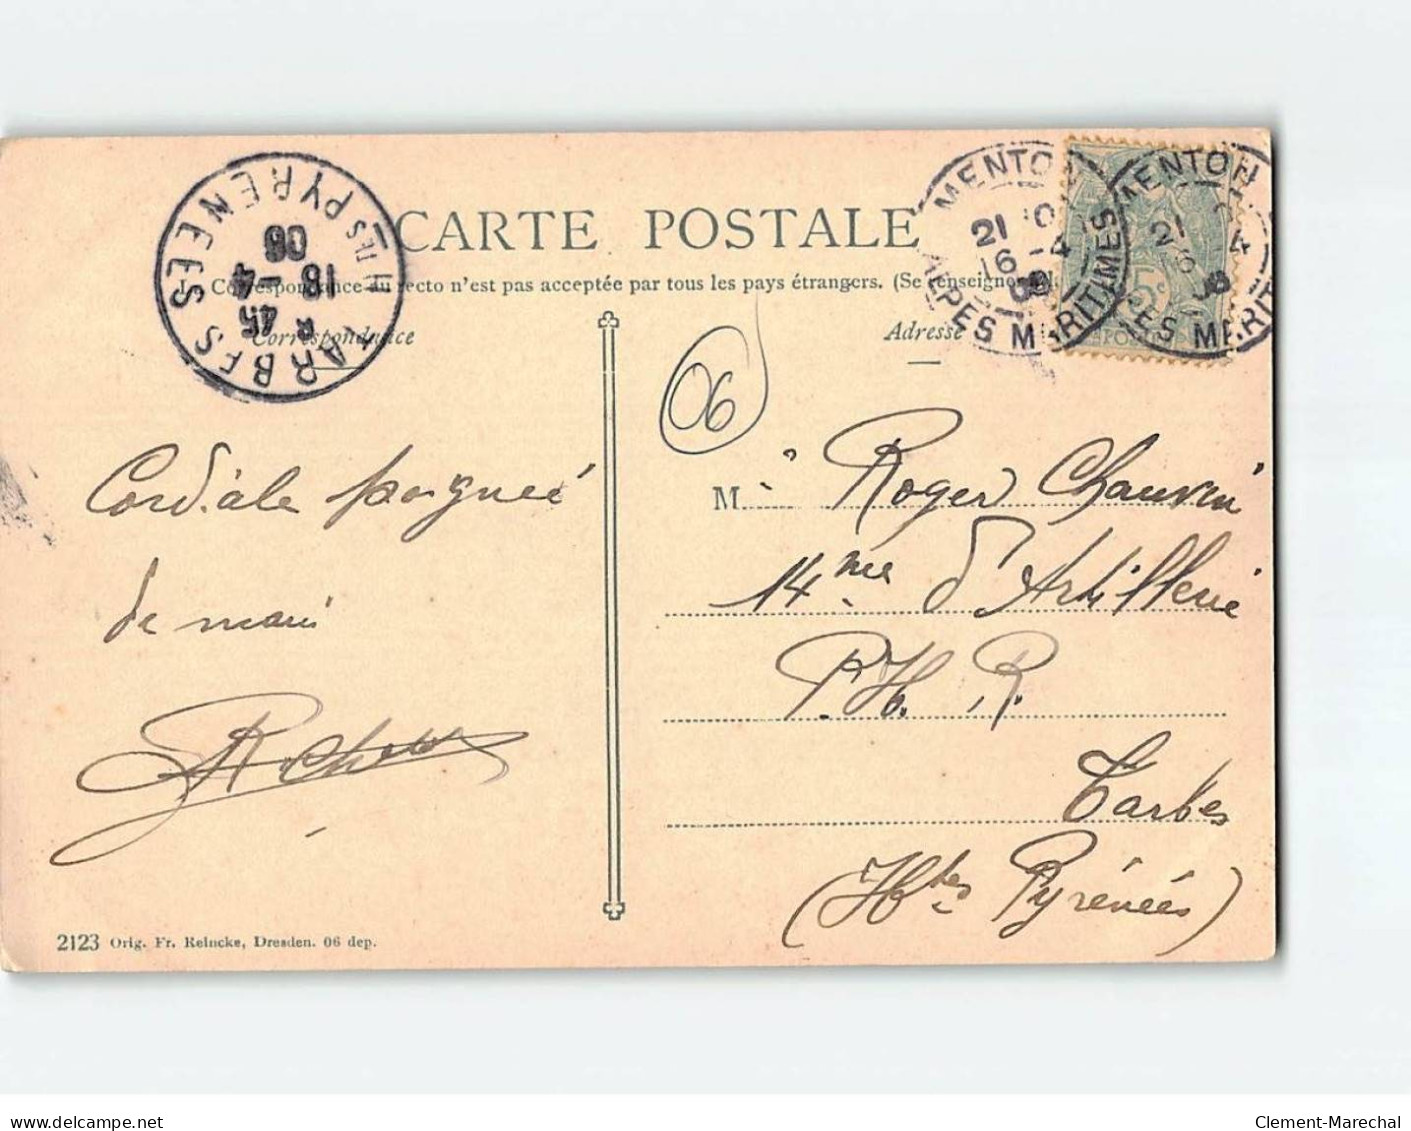 CARTE POSTALE
La Correspondance au recto n'est pas acceptée par tous les pays étrangers. (Se renseigner
Correspondance
Adresse
TARBES
HTES PYRENEES
45
18 - 4
08
MENTON
21
16 - 4
08
ALPES MARITIMES
MENTON
21
16 4
08
ALPES MARIT
5c
06
Cordiale poignée
de main
M. Roger Chauvin
14me d'Artillerie
P. H. R.
Tarbes
(Htes Pyrénées)
2123 Orig. Fr. Reincke, Dresden. 06 dep.
delcampe.net
Clement-Marechal